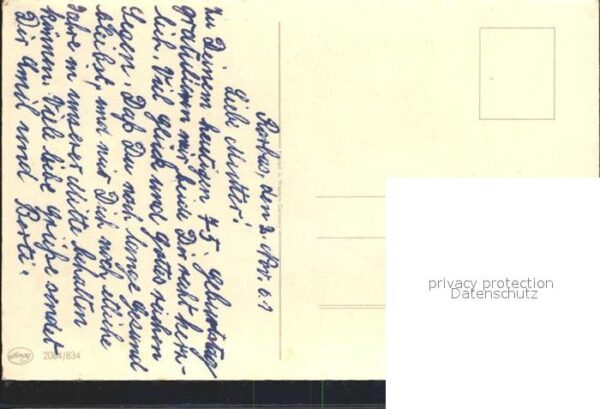 den 2. Nov. 61
Liebe Mutter!
zu Deinem heutigen 75. Geburtstag
gratulieren wir beide Dir recht herz-
lich. Viel Glück und Gottes reichen
Segen. Daß Du noch lange Gesund
bleibst, und wir Dich noch etliche
Jahre in unserer Mitte behalten
können. Viele liebe Grüße sendet
Dir Emil und Berta.
2084/834
privacy protection
Datenschutz